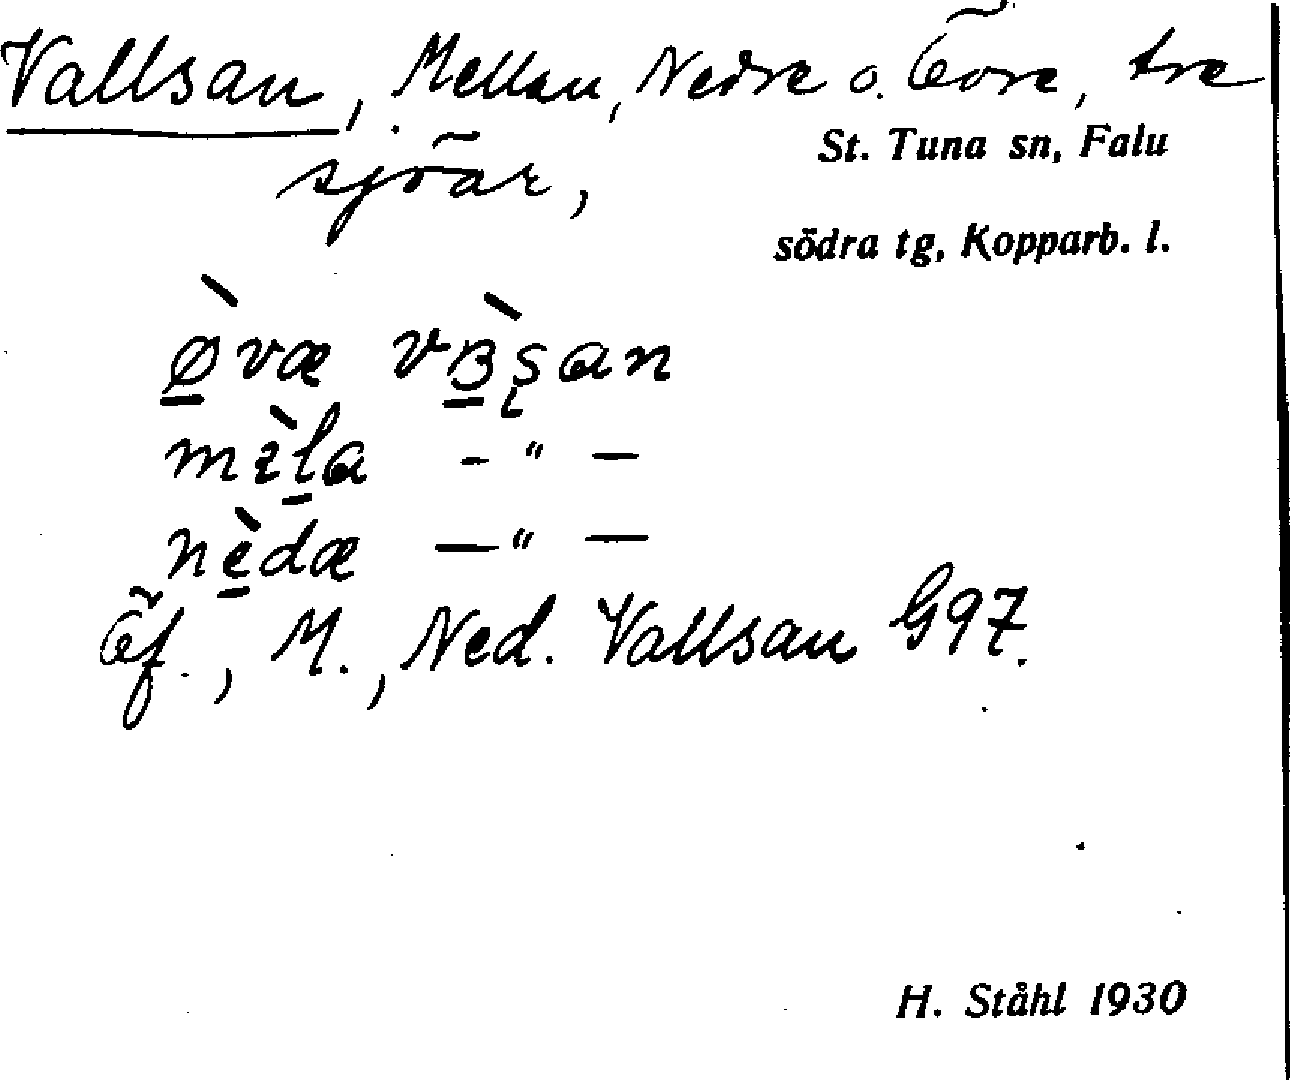 Vallsan, Mellan, Nedre o. Övre, tre
St. Tuna sn, Falu
sjöar,
södra tg, Kopparb. l.
ø̀væ vʙ̀ʂan
mìla - " -
nèdæ - " -
Öf., M., Ned. Vallsan G97.
H. Ståhl 1930